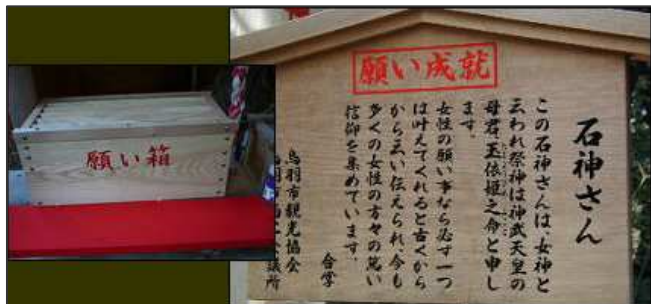 願い成就
石神さん
この石神さんは、女神と
云われ祭神は神武天皇の
母君、玉依姫之命と申し
ます。
女性の願い事なら必ず一つ
は叶えてくれると古くから
から云い伝えられ、今も
多くの女性の方々の篤い
信仰を集めています。
合掌
鳥羽市観光協会
議所
願い箱